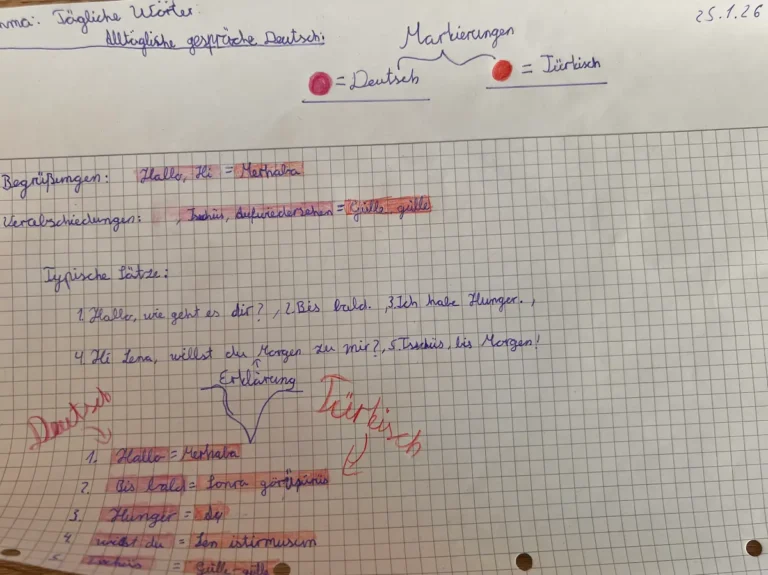 Tägliche Wörter 25.1.26
Alltägliche gespräche Deutsch:
Markierungen
= Deutsch = Türkisch
Begrüßungen: Hallo, Hi = Merhaba
Verabschiedungen: , Tschüs, Aufwiedersehen = Gülle-gülle
Typische Sätze:
1. Hallo, wie geht es dir?, 2. Bis bald. 3. Ich habe Hunger.,
4. Hi Lena, willst du Morgen zu mir?, 5. Tschüs, bis Morgen!
Erklärung
Deutsch Türkisch
1. Hallo = Merhaba
2. Bis bald = Sonra
3. Hunger =
4. willst du = Sen istirmusun
5. Tschüs = Gülle-gülle